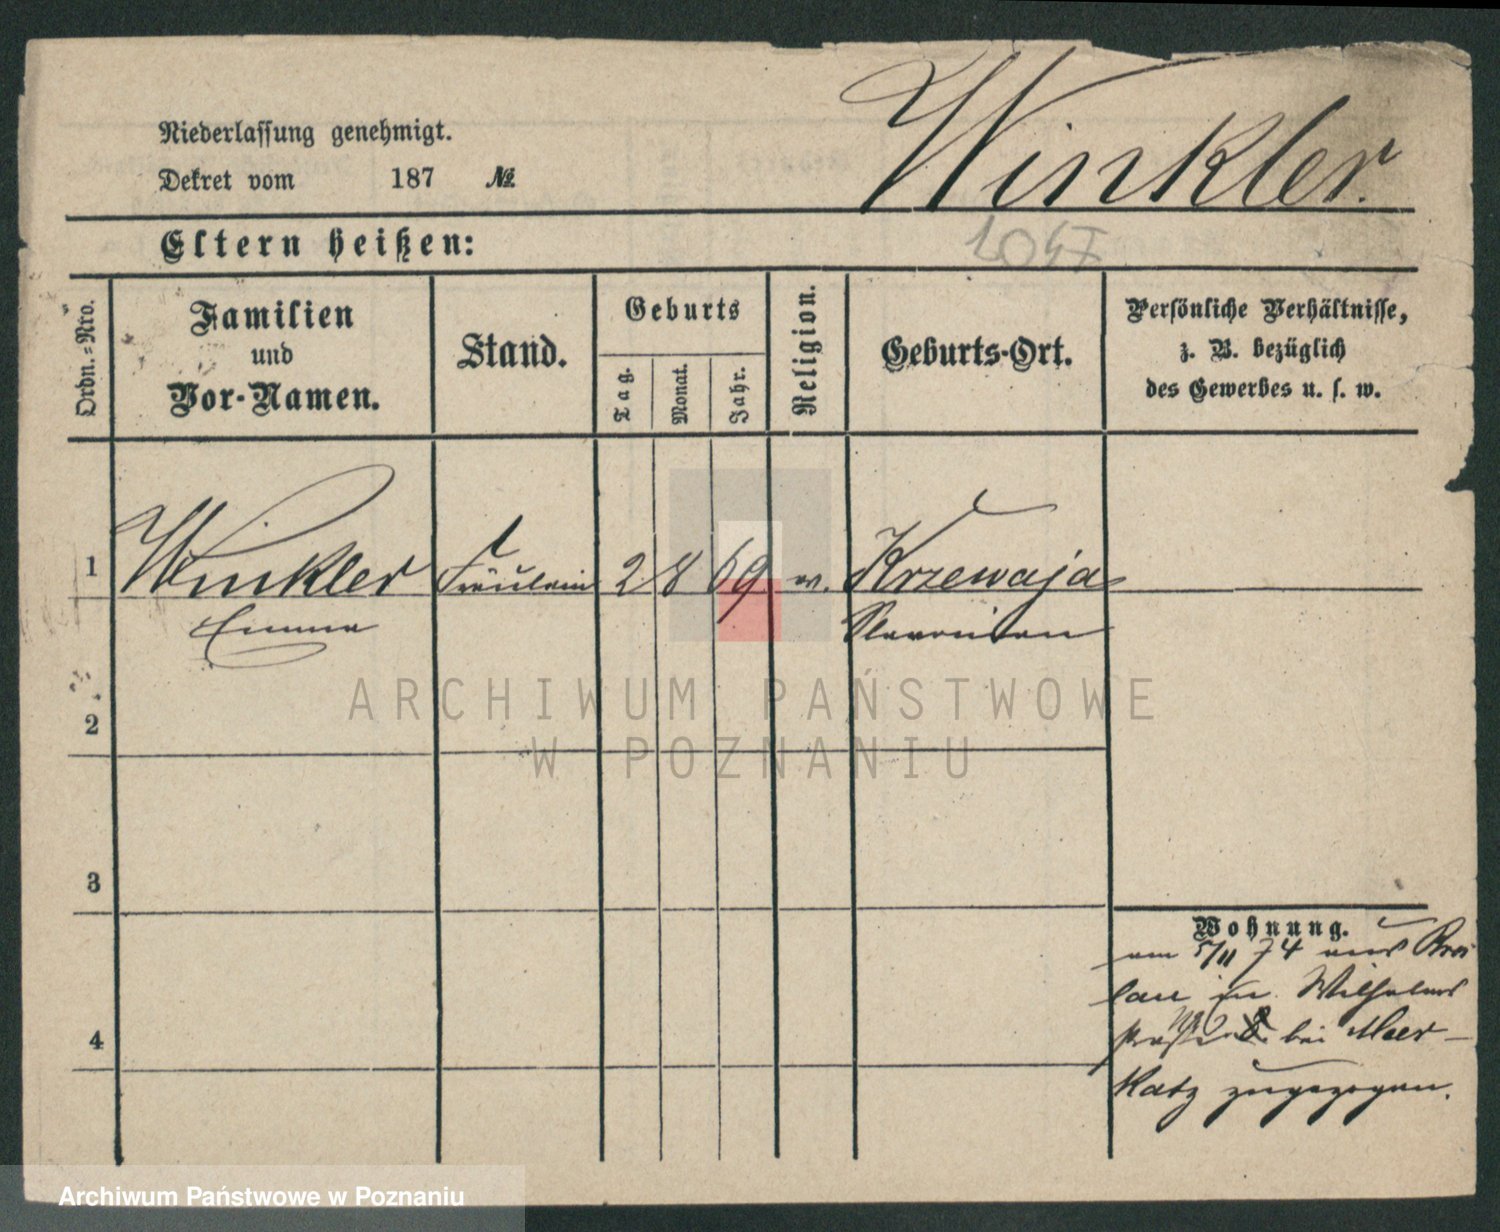 Niederlassung genehmigt.
Dekret vom 187 №
Winkler.
Eltern heißen:
Ordn.-Nro.
Familien
und
Vor-Namen.
Stand.
Geburts
Tag.
Monat.
Jahr.
Religion.
Geburts-Ort.
Persönliche Verhältnisse,
z. B. bezüglich
des Gewerbes u. s. w.
1 Winkler Fräulein 2 8 69 Krzewaja
Emma Slavonien
ARCHIWUM PAŃSTWOWE
W POZNANIU
2
3
4
Wohnung.
am 5/11 74 aus Bres
lau in Wilhelms
straße bei
zugezogen.
Archiwum Państwowe w Poznaniu